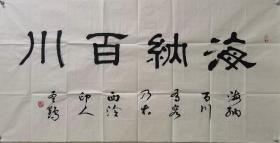 海納百川
海納
百川
有容
乃大
西泠
印人